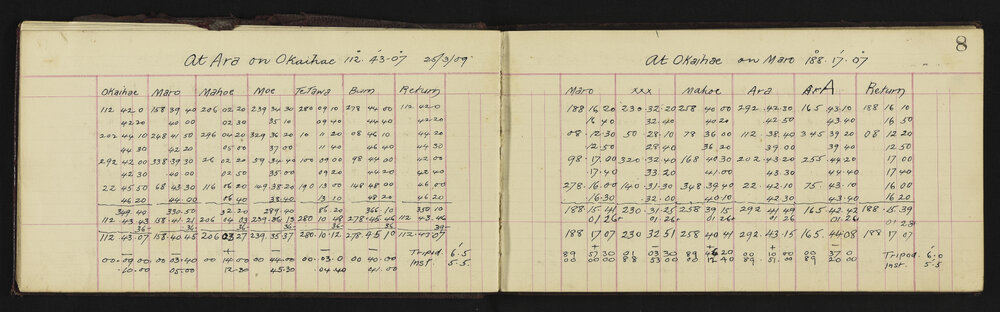 8
At Ara on Okaihae 112°.43'.07 25/3/09
Okaihae Maro Mahoe Moe TeTawa Burn Return
112 42.0 158 39.40 206 02.20 239 34.30 280 09.10 278 44.00 112 42.0
42 20 40 00 02 30 35 10 09.40 44.40 42.20
202 44 10 248 41 50 296 04.20 329 36 20 10 11 20 08 46 10 44 20
44 30 42 20 05 00 37 00 11 40 46 40 44 30
292 42 00 338 39 30 26 02 20 59 34 40 100 09.00 98 44 00 42 00
42.30 40.00 02.50 35 00 09 20 44 20
22 45.50 68 43.30 116 06 20 149 38 20 190 13 00 148 48 00 46 00
46 20 44.00 06 40 38 40 13.10 48 20 46 20
349.40 330.50 32 20 289.40 86.20 366.10 350 10
112 43.43 158.41.21 206 04 03 239.36.13 280 10 48 278.45.46 112 43.46
36- 36- 36- 36- 36- 36- 39-
112 43.07 158 40.45 206 03 27 239.35.37 280.10.12 278.45 10 112.43.07
Tripod 6.5
00.09.00 00 03.40 00 14 00 00 44.00 00.03.0 00 40.00 Inst. 5.5
10.00 05.00 12.30 45.30 04.40 41.00
At Okaihae on Maro 188°.17'.07
Maro xxx Mahoe Ara Ara Return
188 16.20 230.32.20 258 40 00 292.42.30 165 43.10 188 16 10
16 40 32.40 40.20 42.50 43.40 16 50
08.12.30 50 28.10 78 36 00 112.38.40 345 39 20 08 12 20
12.50 28.40 36 20 39.00 39 40 12.50
98.17.00 320.32.40 168 40 30 202.43 20 255.44.20 17 00
17.40 33 20 41.00 43.30 44.40 17.40
278.16.00 140.31.30 348 39.40 22.42.10 75.43.10 16 00
16.30 31.50 40.10 42.30 43.40 16.20
188.15.41 230.31.25 258 39 15 292 41 49 165 42 42 188.15.39
01 26+ 01.26+ 01 26 01.26+ 01 28
188 17 07 230 32 51 258 40 41 292.43.15 165.44 08 188 17 07
Tripod 6.0
89 57 30 01 03 30 89 00 10 00 00 37.0 Inst. 5.5
00 00 00 88 53 00 00 12 40 89.51.00 89 20 00